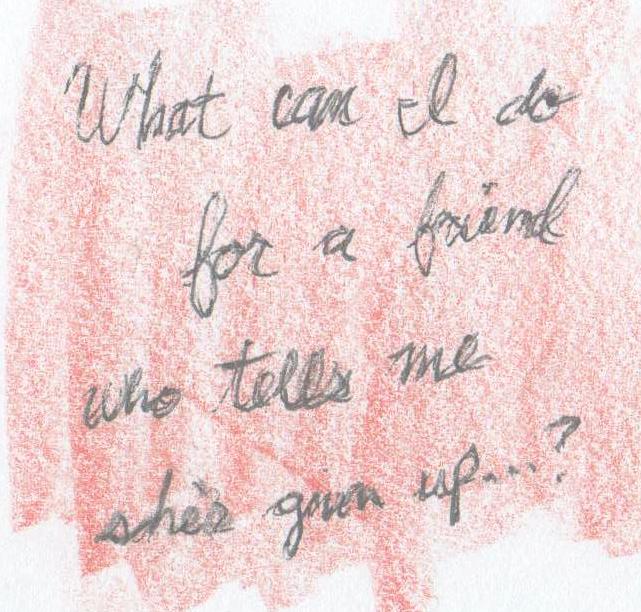 What can I do
for a friend
who tells me
she's given up...?